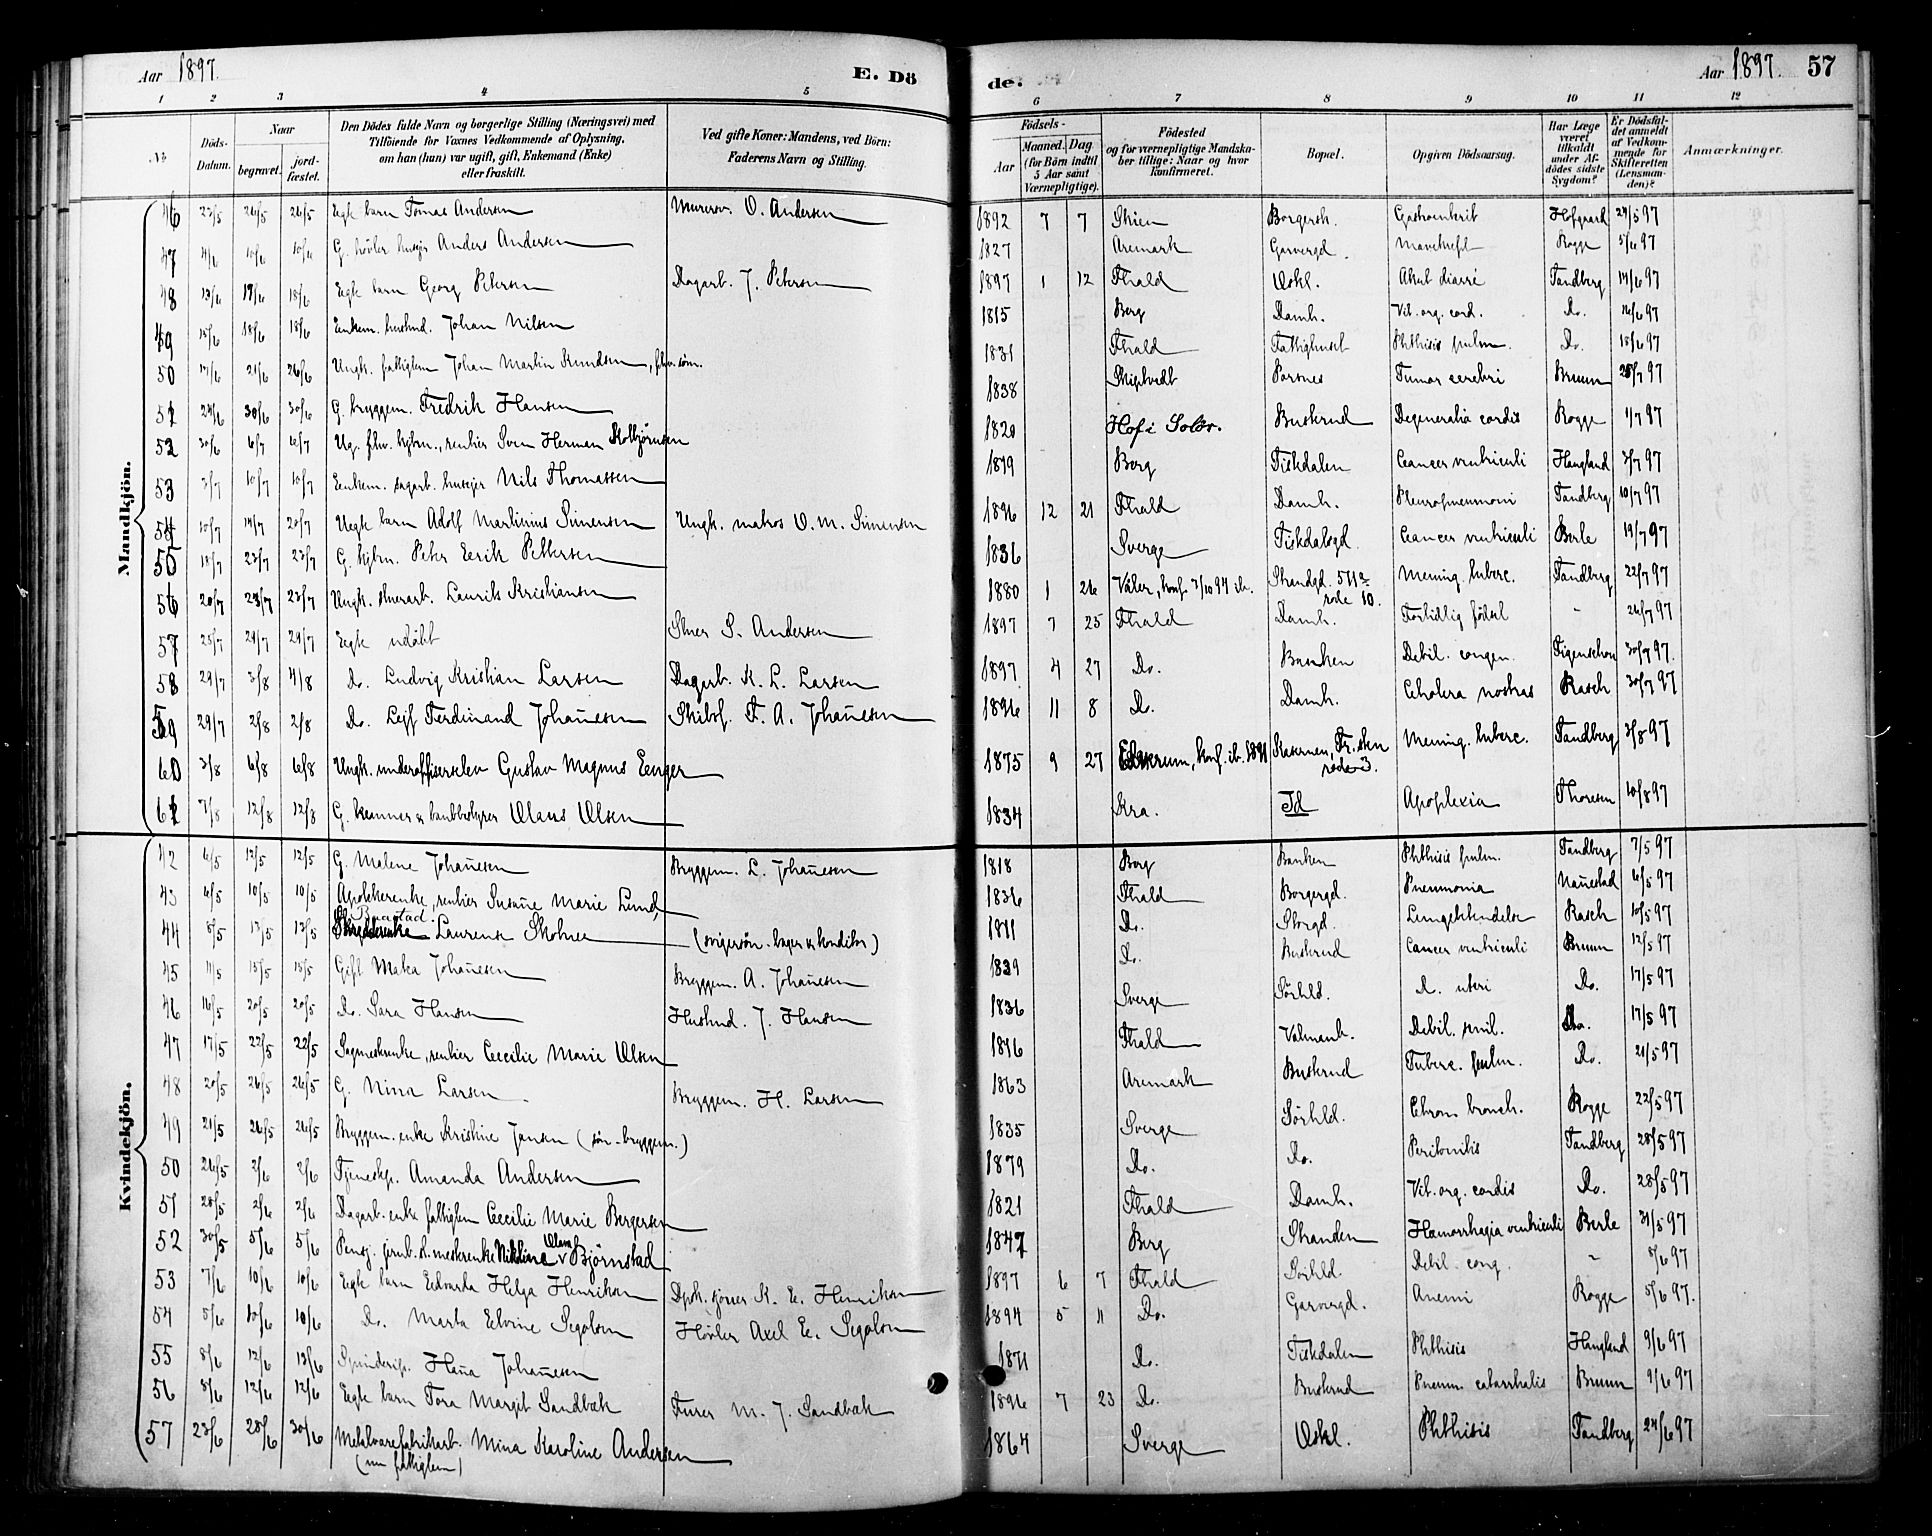 Aar 1897.
E. Dö
de.
Aar 1897. 57
1 2 3 4 5 6 7 8 9 10 11 12
No.
Döds-Datum.
Naar
begravet.
jordfæstet.
Den Dödes fulde Navn og borgerlige Stilling (Næringsvei) med
Tilföiende for Voxnes Vedkommende af Oplysning,
om han (hun) var ugift, gift, Enkemand (Enke)
eller fraskilt.
Ved gifte Koner: Mandens, ved Börn:
Faderens Navn og Stilling.
Födsels-
Aar
Maaned. Dag
(for Börn indtil
5 Aar samt
Værnepligtige).
Födested
og for værnepligtige Mandska-
ber tillige: Naar og hvor
konfirmeret.
Bopæl.
Opgiven Dödsaarsag.
Har Læge
været
tilkaldt
under Af-
dödes sidste
Sygdom?
Er Dödsfal-
det anmeldt
af Vedkom-
mende for
Skifteretten
(Lensman-
den)?
Anmærkninger.
Mandkjön.
46 23/5 26/5 26/5 Egte barn Tomas Andersen Murersv. O. Andersen 1892 7 7 Skien Borgersk. Gastroenterit Hofgaard 24/5 97
47 4/6 10/6 10/6 G. hövler husejer Anders Andersen 1827 Aremark Garvergd. Mavekræft Rogge 5/6 97
48 13/6 17/6 18/6 Egte barn Georg Petersen Dagarb. J. Petersen 1897 1 12 Fhald Oskl. Akut diarré Tandberg 14/6 97
49 15/6 18/6 18/6 Enkem. husmd. Johan Nilsen 1815 Berg Damh. Vit. org. cord. Do. 16/6 97
50 17/6 21/6 26/6 Ungk. fattiglem Johan Martin Knudsen, fhv. söm. 1831 Fhald Fattighuset Phthisis pulm. Do. 18/6 97
51 24/6 30/6 30/6 G. bryggem. Fredrik Hansen 1838 Skiptvedt Porsnes Tumor cerebri Bruun 97
52 30/6 6/7 6/7 Ug. fhv. kjbm., rentier Sven Herman Kolbjörnsen 1820 Hof i Solör. Buskrud Degeneratio cordis Rogge 1/7 97
53 3/7 10/7 10/7 Enkem. sagarb. husejer Nils Thomassen 1819 Berg Tiskdalen Cancer ventriculi Haugland 3/7 97
54 10/7 14/7 20/7 Uegte barn Adolf Martinius Simensen Ungk. matros O. M. Simensen 1896 12 21 Fhald Damh. Pleuropneumoni Tandberg 10/7 97
55 18/7 23/7 23/7 G. kjbm. Peter Eerik Pettersen 1836 Sverge Tiskdalsgd. Cancer ventriculi Berle 19/7 97
56 20/7 23/7 23/7 Ungk. stenarb. Laurits Kristiansen 1880 1 26 Våler, konf. 7/10 94 ib. Strandgd. 511 a rode 10. Mening. tuberc. Tandberg 22/7 97
57 25/7 29/7 29/7 Egte udöbt Stuer S. Andersen 1897 7 25 Fhald Damh. Fortidlig födsel " 26/7 97
58 29/7 3/8 4/8 Do. Ludvig Kristian Larsen Dagarb. K. L. Larsen 1897 4 27 Do. Banken Debil. congen. Figenschou 30/7 97.
59 29/7 2/8 2/8 Do. Leif Ferdinand Johañesen Skibsf. F. A. Johañesen 1896 11 8 Do. Damh. Cholera nostras Rasch 30/7 97
60 3/8 6/8 6/8 Ungk. underoffiserselev Gustav Magnus Eenger 1875 9 27 Elverum, konf. ib. 1891 Kasernen, Fr.sten rode 3. Mening. tuberc. Tandberg 3/8 97
61 7/8 12/8 12/8 G. Olaus Olsen 1834 Kra. Id Apoplexia Thoresen 10/8 97
Kvindekjön.
42 6/5 12/5 12/5 G. Malene Johañesen Bryggem. L. Johañesen 1818 Berg Banken Phthisis pulm. Tandberg 7/5 97
43 6/5 10/5 10/5 Apotekerenke, rentier Susañe Marie Lund, 1836 Fhald Borgergd. Pneumonia Nañestad 6/5 97
44 8/5 13/5 13/5 Laurense Skolnes (svigersön - bager & konditor) 1811 Do. Storgd. Lungebetændelse Rasch 10/5 97
45 11/5 15/5 15/5 Gift Matea Johañesen Bryggem. A. Johañesen 1839 Do. Buskrud Cancer ventriculi Bruun 12/5 97
46 16/5 20/5 20/5 Do. Sara Hansen Husmd. J. Hansen 1836 Sverge Sörhld. D. uteri Do. 17/5 97
47 17/5 22/5 22/5 Sagmesterenke, rentier Cecilie Marie Olsen 1816 Fhald Valmanh. Debil. senil. Do. 17/5 97
48 20/5 26/5 26/5 G. Nina Larsen Bryggem. H. Larsen 1863 Aremark Buskrud Tuberc. pulm. Do. 21/5 97
49 21/5 26/5 26/5 Bryggem. enke Kristine Jansen (sön - bryggem.) 1835 Sverge Sörhld. Chron. bronch. Rogge 22/5 97
50 26/5 2/6 2/6 Tjenestep. Amanda Andersen 1879 Do. Do. Peritonitis Tandberg 28/5 97
51 28/5 2/6 2/6 Dagarb. enke fattiglem Cecilie Marie Bergersen 1821 Fhald Damh. Vit. org. cordis Do. 28/5 97
52 30/5 5/6 5/6 Pensj. jernb.st.mesterenke Nikoline Olava Björnstad 1847 Berg Stranden Hæmorrhagia ventriculi Berle 31/5 97
53 7/6 10/6 10/6 Egte barn Edvarda Helga Henriksen Dpsk. kjörer K. E. Henriksen 1897 6 7 Fhald Sörhld. Debil. cong. " 8/6 97
54 5/6 10/6 10/6 Do. Marta Elvine Segolson Hövler Axel E. Segolson 1894 5 11 Do. Garvergd. Anemi Rogge 5/6 97.
55 8/6 12/6 13/6 Spinderip. Haña Johañesen 1871 Do. Tiskdalen Phthisis Haugland 9/6 97
56 8/6 12/6 12/6 Egte barn Tora Margit Sandbæk Murer M. J. Sandbæk 1896 7 23 Do. Buskrud Pneum. catarrhalis Bruun 9/6 97
57 23/6 28/6 30/6 Metalvarefabrikarb. Mina Karoline Andersen 1864 Sverge Oskl. Phthisis Tandberg 24/6 97
(nu fattiglem)